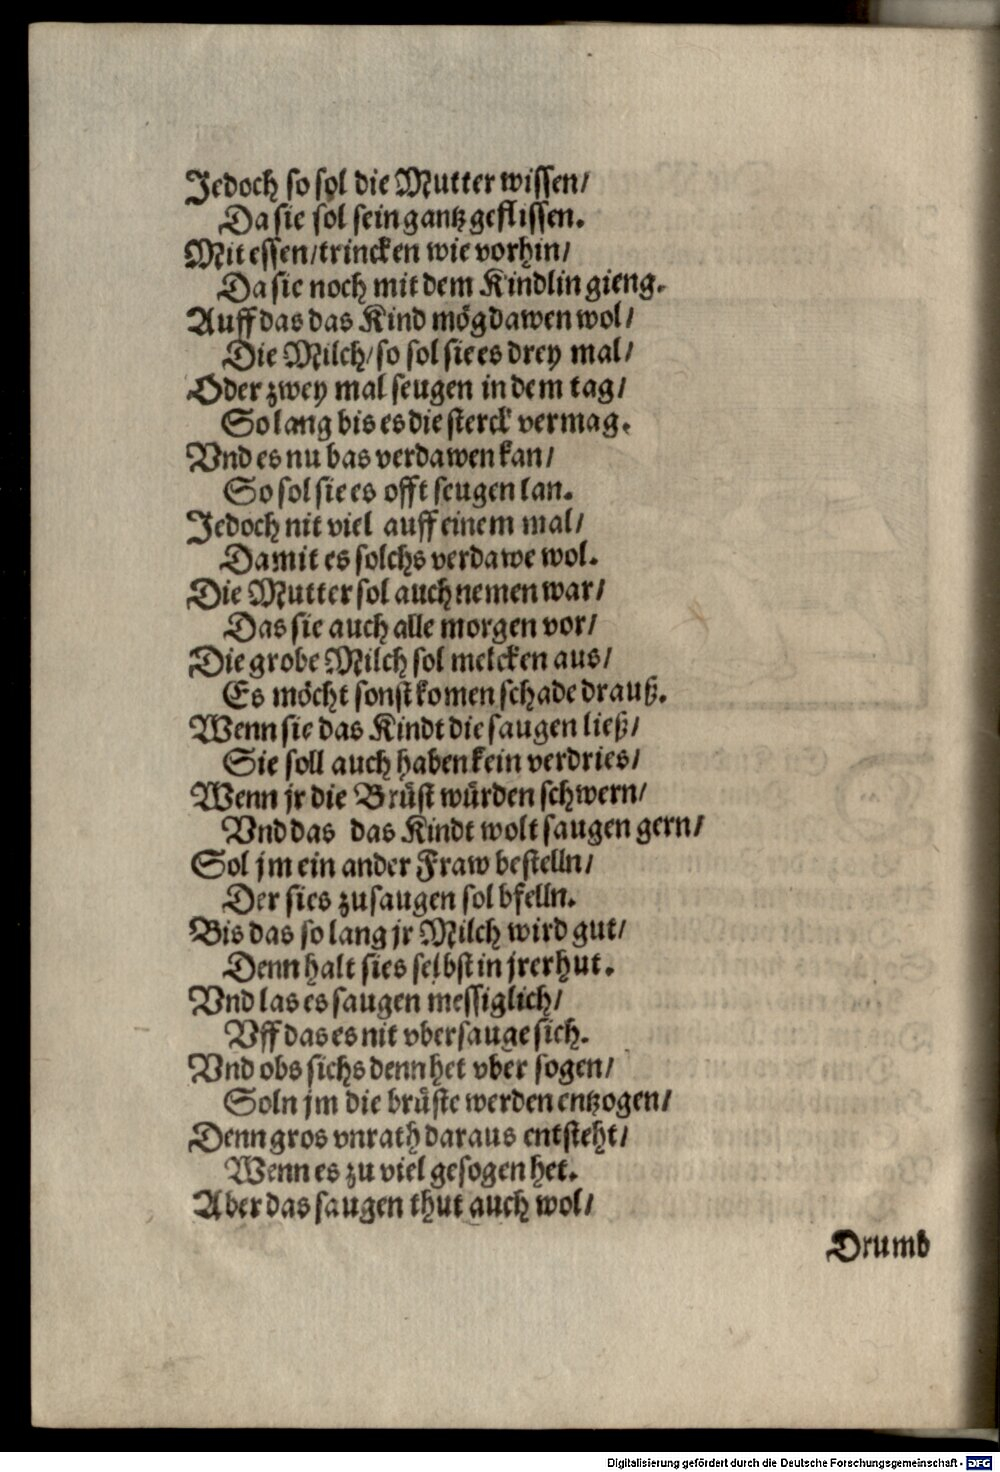 Jedoch so sol die Mutter wissen/
Da sie sol sein gantz geflissen.
Mit essen/trincken wie vorhin/
Da sie noch mit dem Kindlin gieng.
Auff das das Kind mög dawen wol/
Die Milch/so sol sie es drey mal/
Oder zwey mal seugen in dem tag/
So lang bis es die sterck vermag.
Vnd es nu bas verdawen kan/
So sol sie es offt seugen lan.
Jedoch nit viel auff einem mal/
Damit es solchs verdawe wol.
Die Mutter sol auch nemen war/
Das sie auch alle morgen vor/
Die grobe Milch sol melcken aus/
Es möcht sonst komen schade drauß.
Wenn sie das Kindt die saugen ließ/
Sie soll auch haben kein verdries/
Wenn jr die Brüst würden schwern/
Vnd das das Kindt wolt saugen gern/
Sol jm ein ander Fraw bestelln/
Der sies zusaugen sol bfelln.
Bis das so lang jr Milch wird gut/
Denn halt sies selbst in jrer hut.
Vnd las es saugen messiglich/
Vff das es nit vbersauge sich.
Vnd obs sichs denn het vber sogen/
Soln jm die brüste werden entzogen/
Denn gros vnrath daraus entsteht/
Wenn es zu viel gesogen het.
Aber das saugen thut auch wol/
Drumb
Digitalisierung gefördert durch die Deutsche Forschungsgemeinschaft - DFG